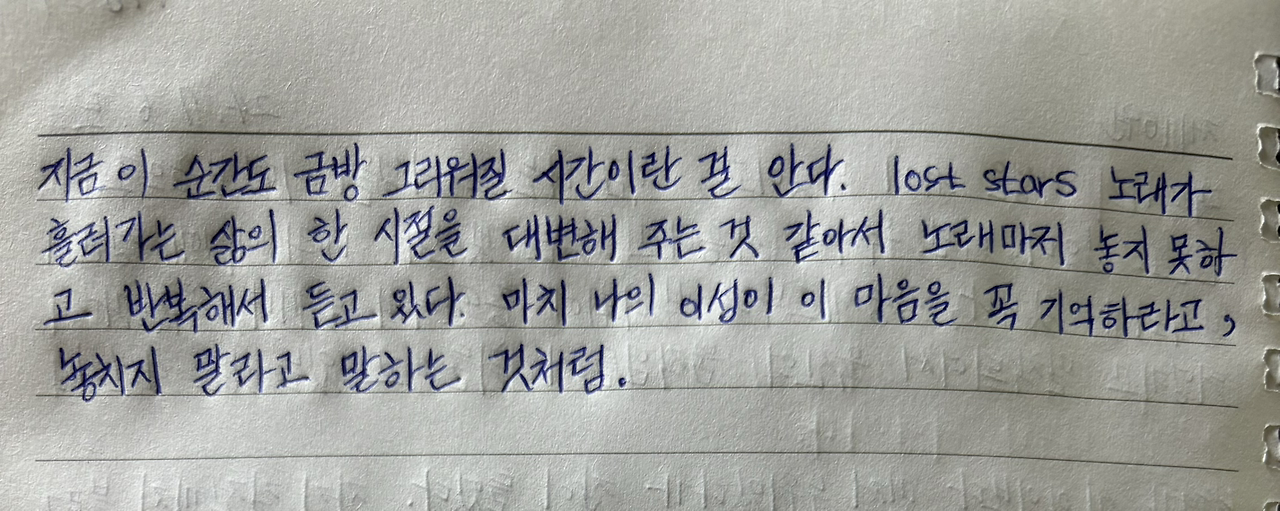 지금 이 순간도 금방 그리워질 시간이란 걸 안다. lost stars 노래가
흘러가는 삶의 한 시절을 대변해 주는 것 같아서 노래마저 놓지 못하
고 반복해서 듣고 있다. 마치 나의 이성이 이 마음을 꼭 기억하라고,
놓치지 말라고 말하는 것처럼.